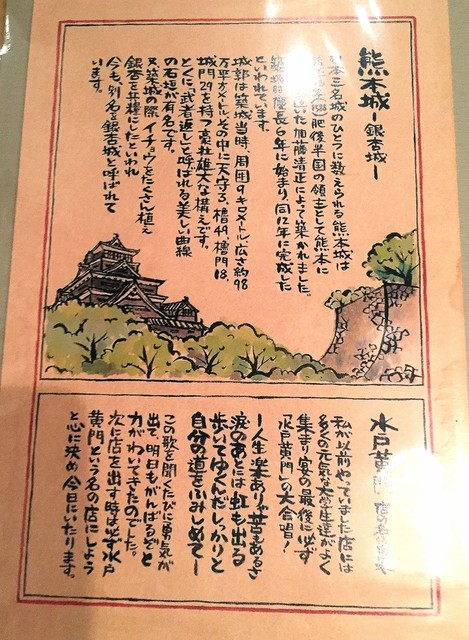 熊本城ー銀杏城ー
日本三名城のひとつに数えられる熊本城は
肥後半国の領主として熊本に
いた加藤清正によって築かれました。
築城は慶長6年に始まり、同12年に完成した
といわれています。
城郭は築城当時、周囲9キロメートル、広さ約98
万平方メートルとその中に天守3、櫓49、櫓門18、
城門29を持つ豪壮雄大な構えです。
とくに「武者返し」と呼ばれる美しい曲線
の石垣が有名です。
又築城の際イチョウをたくさん植え
銀杏を兵糧にしたといわれ
今も、別名を銀杏城と呼ばれて
います。
水戸黄門 店の名の由来
私が以前やっていました店には
多くの元気な大学生達がよく
集まり宴の最後に必ず
「水戸黄門」の大合唱!
ー人生楽ありゃ苦もあるさ
涙のあとには虹も出る
歩いてゆくんだしっかりと
自分の道をふみしめてー
この歌を聞くたびに勇気が
出て、明日もがんばるぞと
力がわいてきたのでした。
次に店を出す時は必ず水戸
黄門という名の店にしよう
と心に決め今日にいたります。